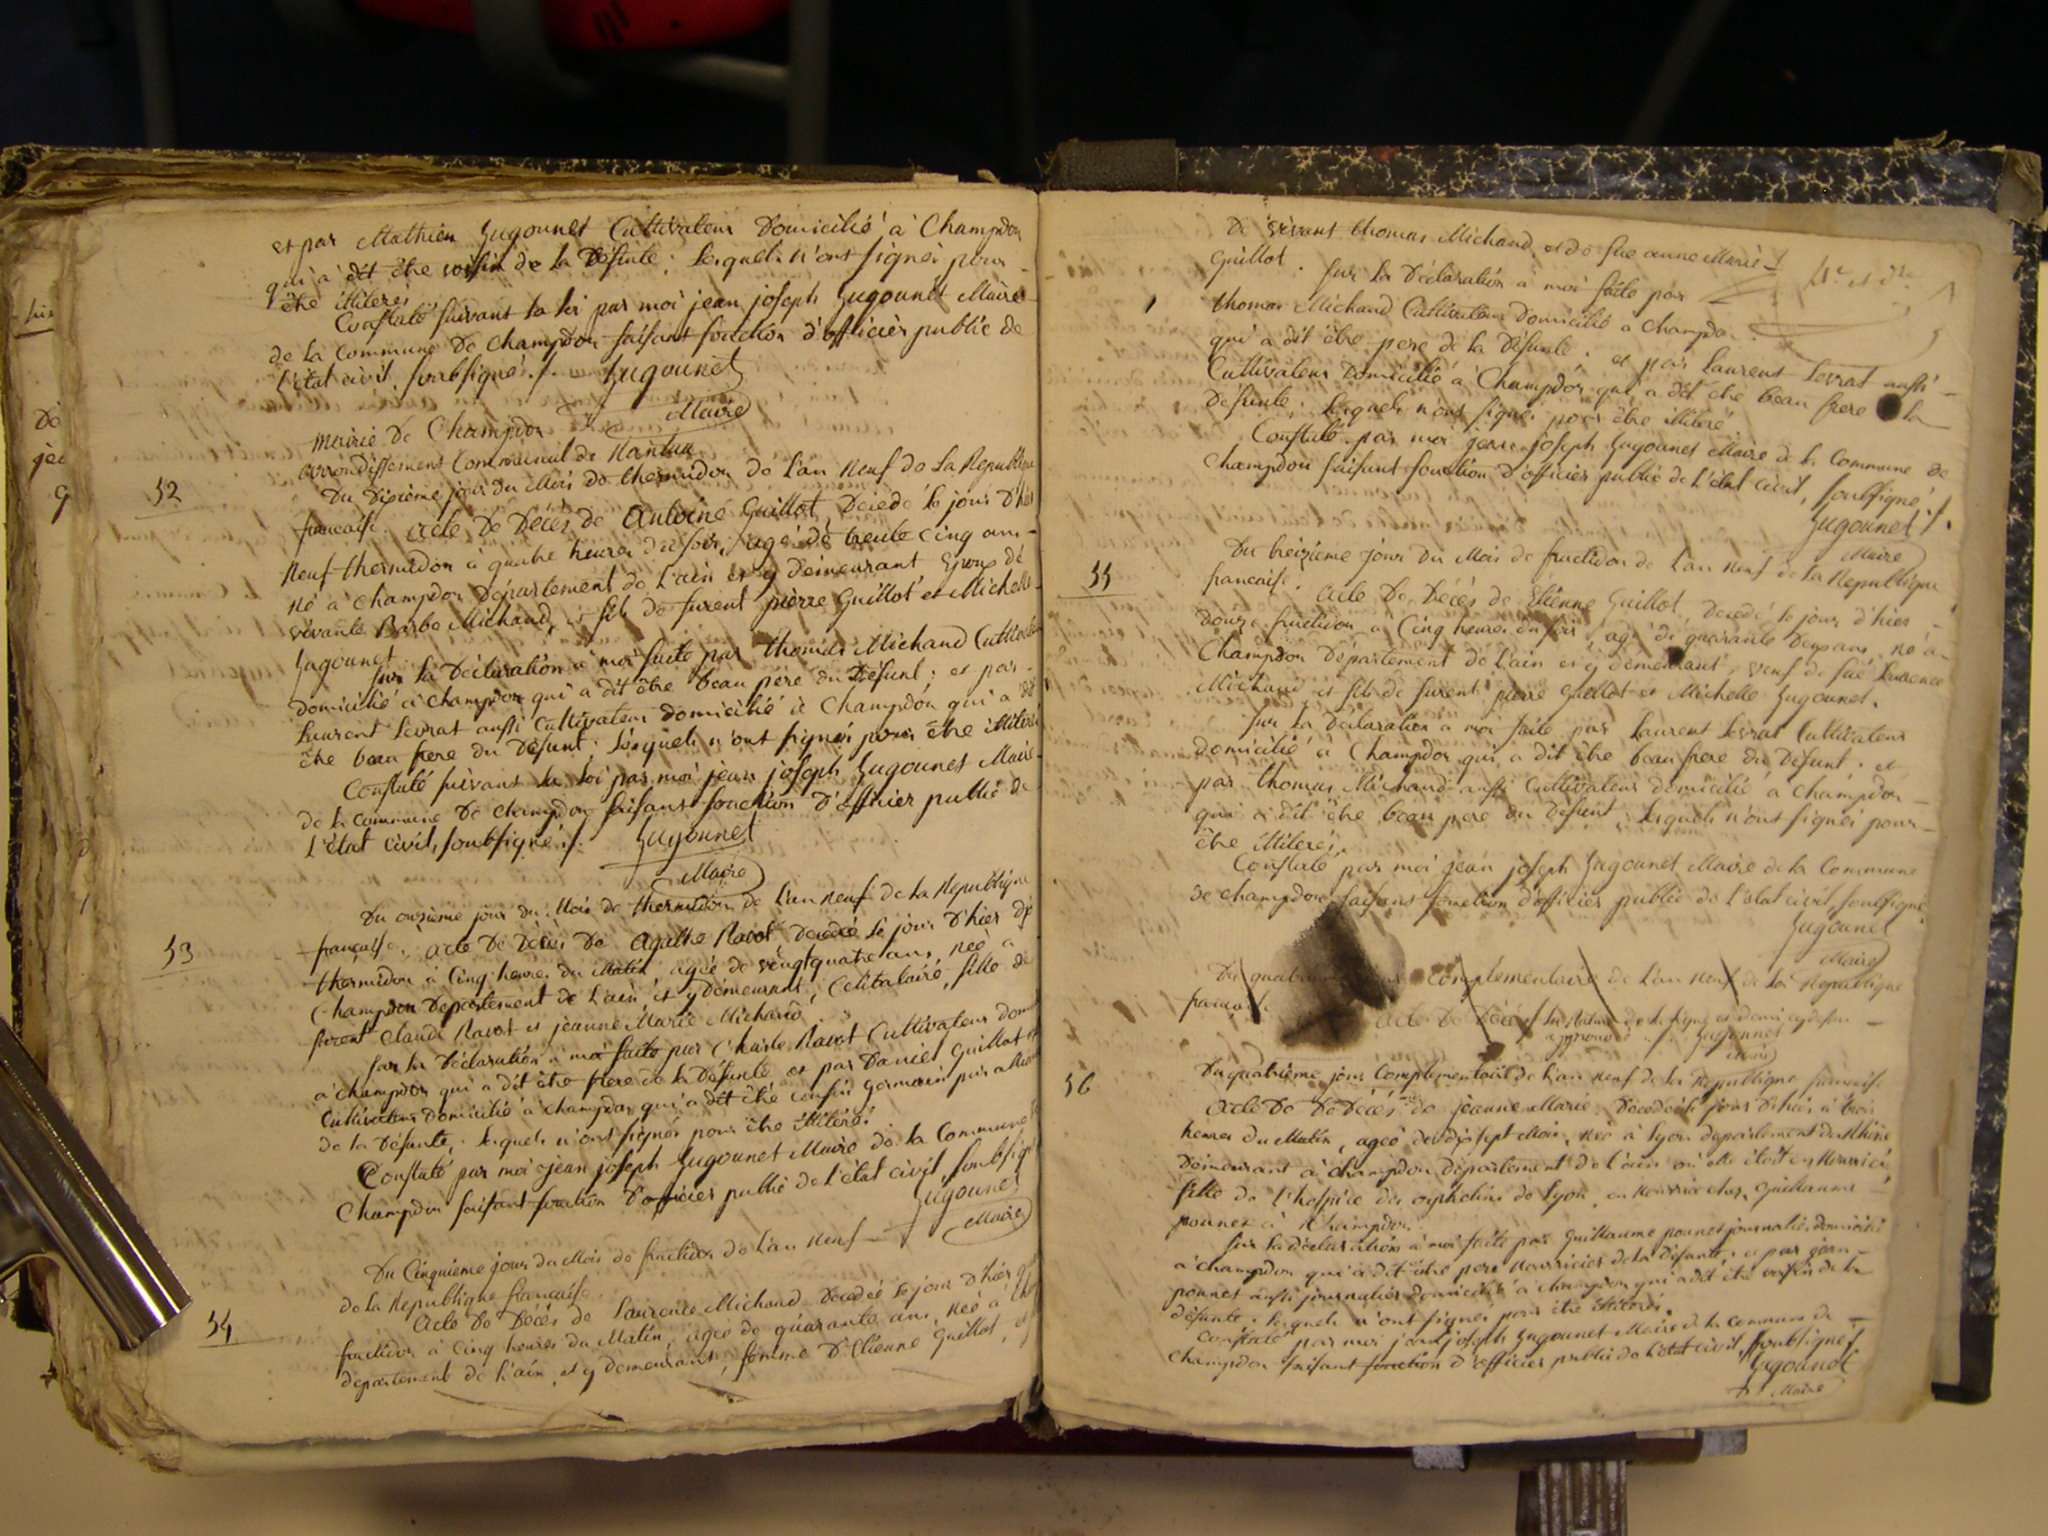 et par Mathieu Gugounet Cultivateur Domicilié à Champdor
qui a dit être voisin de la Défunte ; lesquels n'ont signés pour
être illiterés
Constaté suivant la loi par moi jean joseph Gugounet Maire
de la commune de champdor faisant fonction d'officier public de
l'état civil, soubsigné ./.
Gugounet
Maire
Mairie de Champdor
arrondissement Communal de Nantua
52
Du Dixième jour du Mois de thermidor de l'an Neuf de La République
française. acte De Décès de Antoine Guillot, Décédé le jour D'hier
Neuf thermidor à quatre heures du soir, agé de trente cinq ans
né à Champdor Département de l'ain et y demeurant Epoux de
vivante Barbe Michaud, et fils de furent pierre Guillot et Michelle
Gugounet.
sur la Déclaration à moi faite par thomas Michaud Cultivateur
domicilié à Champdor qui a dit être beau père du Défunt ; et par
Laurent Levrat aussi Cultivateur domicilié à Champdor qui a dit
être beau frere du Défunt ; lesquels n'ont signés pour être illiterés
Constaté suivant la loi par moi jean joseph Gugounet Maire
de la commune De champdor faisant fonction D'officier public de
l'état civil, soubsigné ./.
Gugounet
Maire
53
Du onzième jour du Mois de thermidor de l'an Neuf de la Republique
française. acte De Décès De Agathe Ravot, Décédée le jour D'hier dix
thermidor à Cinq heures du Matin, agée de vingt quatre ans, née à
Champdor Departement de L'ain, et y demeurant, Celibataire, fille de
furent Claude Ravot et jeanne Marie Michaud.
sur la Déclaration à moi faite par Charle Ravot Cultivateur
à champdor qui a dit être frere de la Défunte et par Daniel Guillot
Cultivateur domicilié à champdor qui a dit être cousin germain
de la Défunte, lesquels n'ont signés pour être illiterés.
Constaté par moi jean joseph Gugounet Maire de la Commune
Champdor faisant fonction D'officier public de l'état civil, soubsigné
Gugounet
Maire
54
Du Cinquieme jour du Mois de fructidor de l'an Neuf
de la Republique française.
acte De Décès de Laurence Michaud Décédée le jour D'hier
fructidor à Cinq heures du Matin, agée de quarante ans, Née à
departement de l'ain, et y demeurant, femme D'Etienne Guillot,
De vivant thomas Michaud, et de feue anne Marie
Guillot. sur la Déclaration à moi faite par
thomas Michaud Cultivateur Domicilié à champdor
qui a dit être pere de la Défunte ; et par Laurent Levrat aussi
Cultivateur Domicilié à Champdor qui a dit être beau frere la
Défunte ; lesquels n'ont signés pour être illiteré.
Constaté par moi jean joseph Gugounet Maire de la Commune de
champdor faisant fonction D'officier public de l'état civil, soubsigné ./.
Gugounet
Maire
55
Du treizieme jour Du Mois de fructidor de l'an Neuf de la Republique
française. acte De Décès de Etienne Guillot, Décédé le jour d'hier
Douze fructidor à Cinq heures du soir, agé de quarante Deux ans, né à
Champdor Département de l'ain et y demeurant, veuf de feue Laurence
Michaud et fils de furent pierre Guillot et Michelle Gugounet.
sur la Déclaration à moi faite par Laurent Levrat Cultivateur
domicilié à Champdor qui a dit être beau frere du Defunt ; et
par thomas Michaud aussi Cultivateur domicilié à champdor
qui a dit être beau pere du Défunt, lesquels n'ont signés pour
être illiterés.
Constaté par moi jean joseph Gugounet Maire de la Commune
de champdor faisant fonction d'officier public de l'état civil soubsigné
Gugounet
Maire
Du complementaire de l'an Neuf de la Republique
française
acte De Décès la Rature de la ligne et demi cydessus
approuvé ./. Gugounet
Maire
56
Du quatrième jour Complementaire de l'an Neuf de la Republique française
acte De Décès de jeanne Marie Decedée le jour D'hier à trois
heures du Matin, agée de dix sept Mois, Née à Lyon departement du Rhône
Demeurant à champdor département de l'ain où elle étoit en Nourrice
fille de l'hospice des orphelins de Lyon, en Nourrice chez Guillaume
pounet à Champdor.
sur la declaration à moi faite par Guillaume pounet journalier domicilié
à champdor qui a dit être pere Nourricier de la Défunte ; et par jean
pounet aussi journalier domicilié à champdor qui a dit être voisin de la
défunte ; lesquels n'ont signés pour être illiterés.
Constaté par moi jean joseph Gugounet Maire de la commune de
Champdor faisant fonction D'officier public de l'état civil, soubsigné ./.
Gugounet
Maire